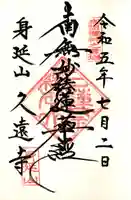 令和五年七月二日
南無妙法蓮華経
身延山久遠寺